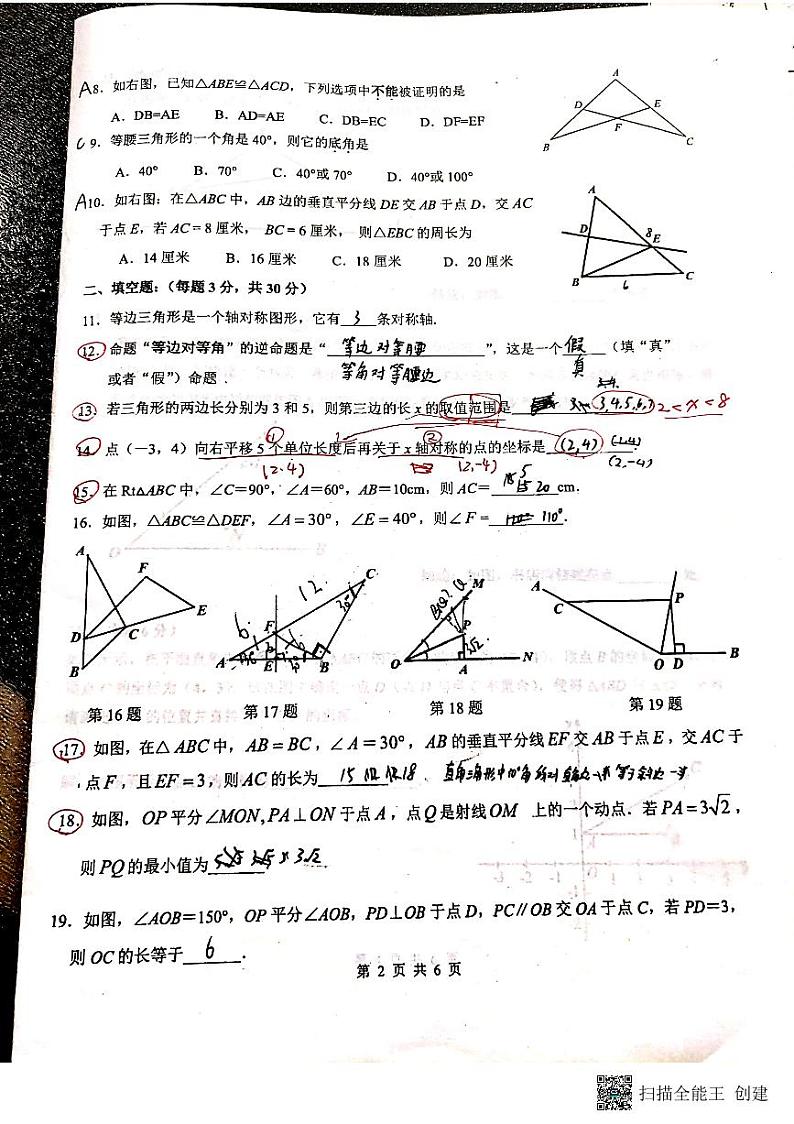 A8. 如右图，已知△ABE≌△ACD，下列选项中不能被证明的是
A. DB=AE B. AD=AE C. DB=EC D. DF=EF
C 9. 等腰三角形的一个角是 40°，则它的底角是
A. 40° B. 70° C. 40°或 70° D. 40°或 100°
A10. 如右图：在△ABC 中，AB 边的垂直平分线 DE 交 AB 于点 D，交 AC
于点 E，若 AC = 8 厘米， BC = 6 厘米， 则△EBC 的周长为
A. 14 厘米 B. 16 厘米 C. 18 厘米 D. 20 厘米
A D E F B C
A D 8 E B 6 C
二、填空题：（每题 3 分，共 30 分）
11. 等边三角形是一个轴对称图形，它有 3 条对称轴.
12. 命题“等边对等角”的逆命题是“ 等边对等腰 ”，这是一个 假 （填“真”
或者“假”）命题 . 等角对等边 真
13. 若三角形的两边长分别为 3 和 5，则第三边的长 x 的取值范围是 3,4,5,6,7 2<x<8
14. 点（—3，4）向右平移 5 个单位长度后再关于 x 轴对称的点的坐标是 (2,4)
① ② (2,4) (2,-4) (2,-4)
15. 在 Rt△ABC 中，∠C=90°，∠A=60°，AB=10cm，则 AC= 15 20 5 cm.
16. 如图，△ABC≌△DEF，∠A = 30°，∠E = 40°，则∠F = 110°.
A F D C E B
C 12. 6. F A E B
M Q P O A N
A C P O D B
第 16 题 第 17 题 第 18 题 第 19 题
17. 如图，在△ ABC 中，AB = BC，∠A = 30°，AB 的垂直平分线 EF 交 AB 于点 E，交 AC 于
点 F，且 EF = 3，则 AC 的长为 15 18
18. 如图，OP 平分∠MON, PA⊥ON 于点 A，点 Q 是射线 OM 上的一个动点．若 PA = 3√2，
则 PQ 的最小值为 3√2 .
19. 如图，∠AOB=150°，OP 平分∠AOB，PD⊥OB 于点 D，PC∥OB 交 OA 于点 C，若 PD=3，
则 OC 的长等于 6 .
第 2 页 共 6 页
扫描全能王 创建